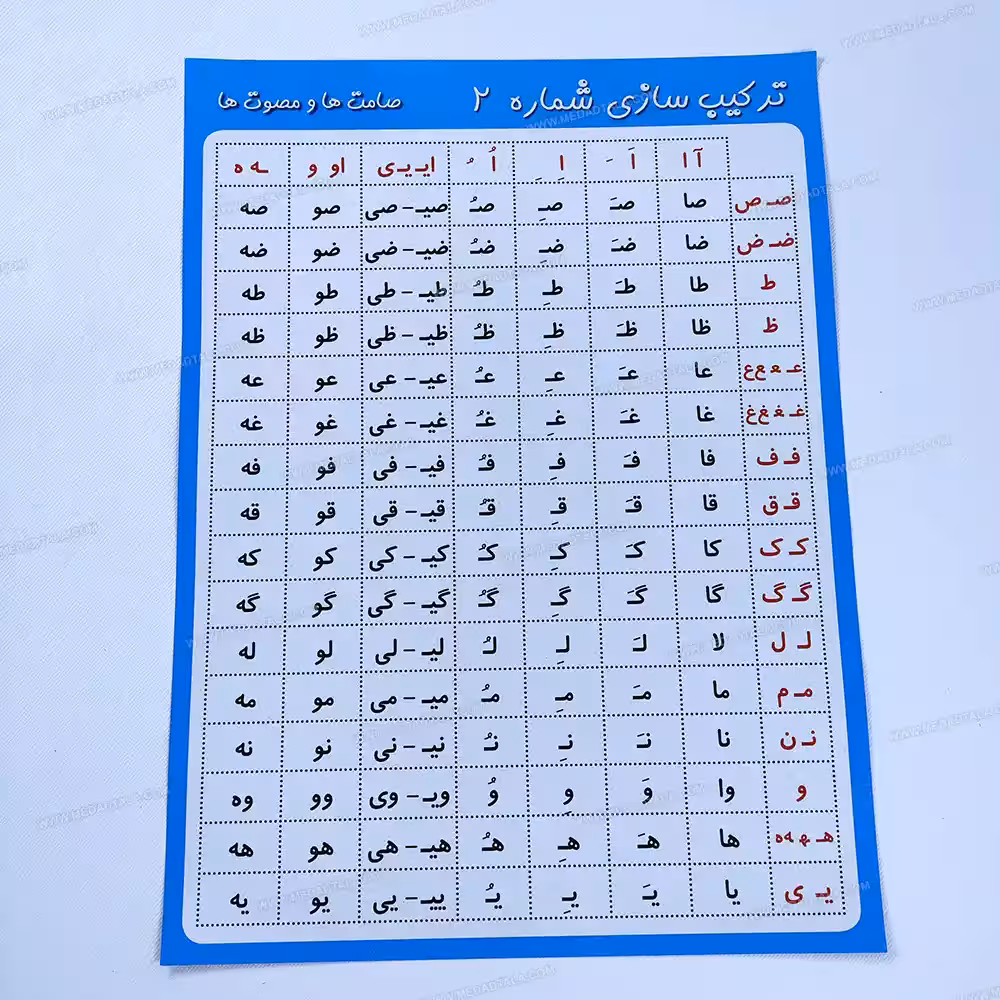 ترکیب سازی شماره ۲ صامت ها و مصوت ها
آ ا اَ ـَ اِ ـِ اُ ـُ ایـ یـ ی او و ـه ه
صـ ص صا صـَ صـِ صـُ صیـ - صی صو صه
ضـ ض ضا ضـَ ضـِ ضـُ ضیـ - ضی ضو ضه
ط طا طـَ طـِ طـُ طیـ - طی طو طه
ظ ظا ظـَ ظـِ ظـُ ظیـ - ظی ظو ظه
عـ ـعـ ـع ع عا عـَ عـِ عـُ عیـ - عی عو عه
غـ ـغـ ـغ غ غا غـَ غـِ غـُ غیـ - غی غو غه
فـ ف فا فـَ فـِ فـُ فیـ - فی فو فه
قـ ق قا قـَ قـِ قـُ قیـ - قی قو قه
کـ ک کا کـَ کـِ کـُ کیـ - کی کو که
گـ گ گا گـَ گـِ گـُ گیـ - گی گو گه
لـ ل لا لـَ لـِ لـُ لیـ - لی لو له
مـ م ما مـَ مـِ مـُ میـ - می مو مه
نـ ن نا نـَ نـِ نـُ نیـ - نی نو نه
و وا وَ وِ وُ ویـ - وی وو وه
هـ ـهـ ـه ه ها هـَ هـِ هـُ هیـ - هی هو هه
یـ ی یا یـَ یـِ یـُ ییـ - یی یو یه
WWW.MEDADTALA.COM